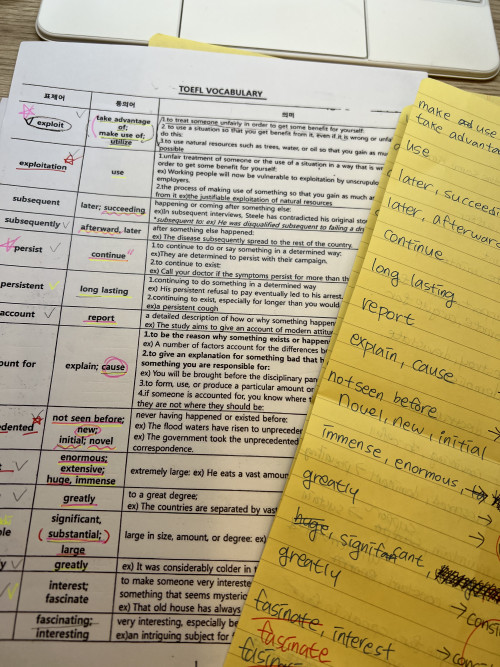 TOEFL VOCABULARY
표제어 동의어 의미
exploit
take advantage
of;
make use of;
utilize
1.to treat someone unfairly in order to get some benefit for yourself:
2. to use a situation so that you get benefit from it, even if it is wrong or
do this:
3.to use natural resources such as trees, water, or oil so that you gain as
possible
exploitation
use
1.unfair treatment of someone or the use of a situation in a way that is
order to get some benefit for yourself:
ex) Working people will now be vulnerable to exploitation by
employers.
2.the process of making use of something so that you gain as much
from it ex)the justifiable exploitation of natural resources
subsequent
later; succeeding
happening or coming after something else:
ex)In subsequent interviews, Steele has contradicted his original
*subsequent to: ex) He was disqualified subsequent to failing a
subsequently
afterward, later
after something else happened:
ex) The disease subsequently spread to the rest of the country.
persist
continue
1.to continue to do or say something in a determined way:
ex)They are determined to persist with their campaign.
2.to continue to exist:
ex) Call your doctor if the symptoms persist for more than
persistent
long lasting
1.continuing to do something in a determined way
ex) His persistent refusal to pay eventually led to his arrest.
2.continuing to exist, especially for longer than you would
ex)a persistent cough
account
report
a detailed description of how or why something
ex) The study aims to give an account of modern
explain; cause
1.to be the reason why something exists or
ex) A number of factors account for the differences
2.to give an explanation for something bad that
something you are responsible for:
ex) You will be brought before the disciplinary
3.to form, use, or produce a particular amount or
4.if someone is accounted for, you know where
they are not where they should be:
not seen before;
new;
initial; novel
never having happened or existed before:
ex) The flood waters have risen to
ex) The government took the unprecedented
correspondence.
enormous;
extensive;
huge, immense
extremely large: ex) He eats a vast
greatly
to a great degree;
ex) The countries are separated by
significant,
(substantial;)
large
large in size, amount, or degree: ex)
greatly
ex) It was considerably colder in
interest;
fascinate
to make someone very
something that seems
ex) That old house has always
fascinating;
interesting
very interesting, especially
ex)an intriguing subject for
1
make use
take
use
later,
later,
continue
long lasting
report
explain, cause
not seen before
novel, new, initial
immense, enormous,
greatly
huge, significant,
greatly
fasinate, interest
fascinate